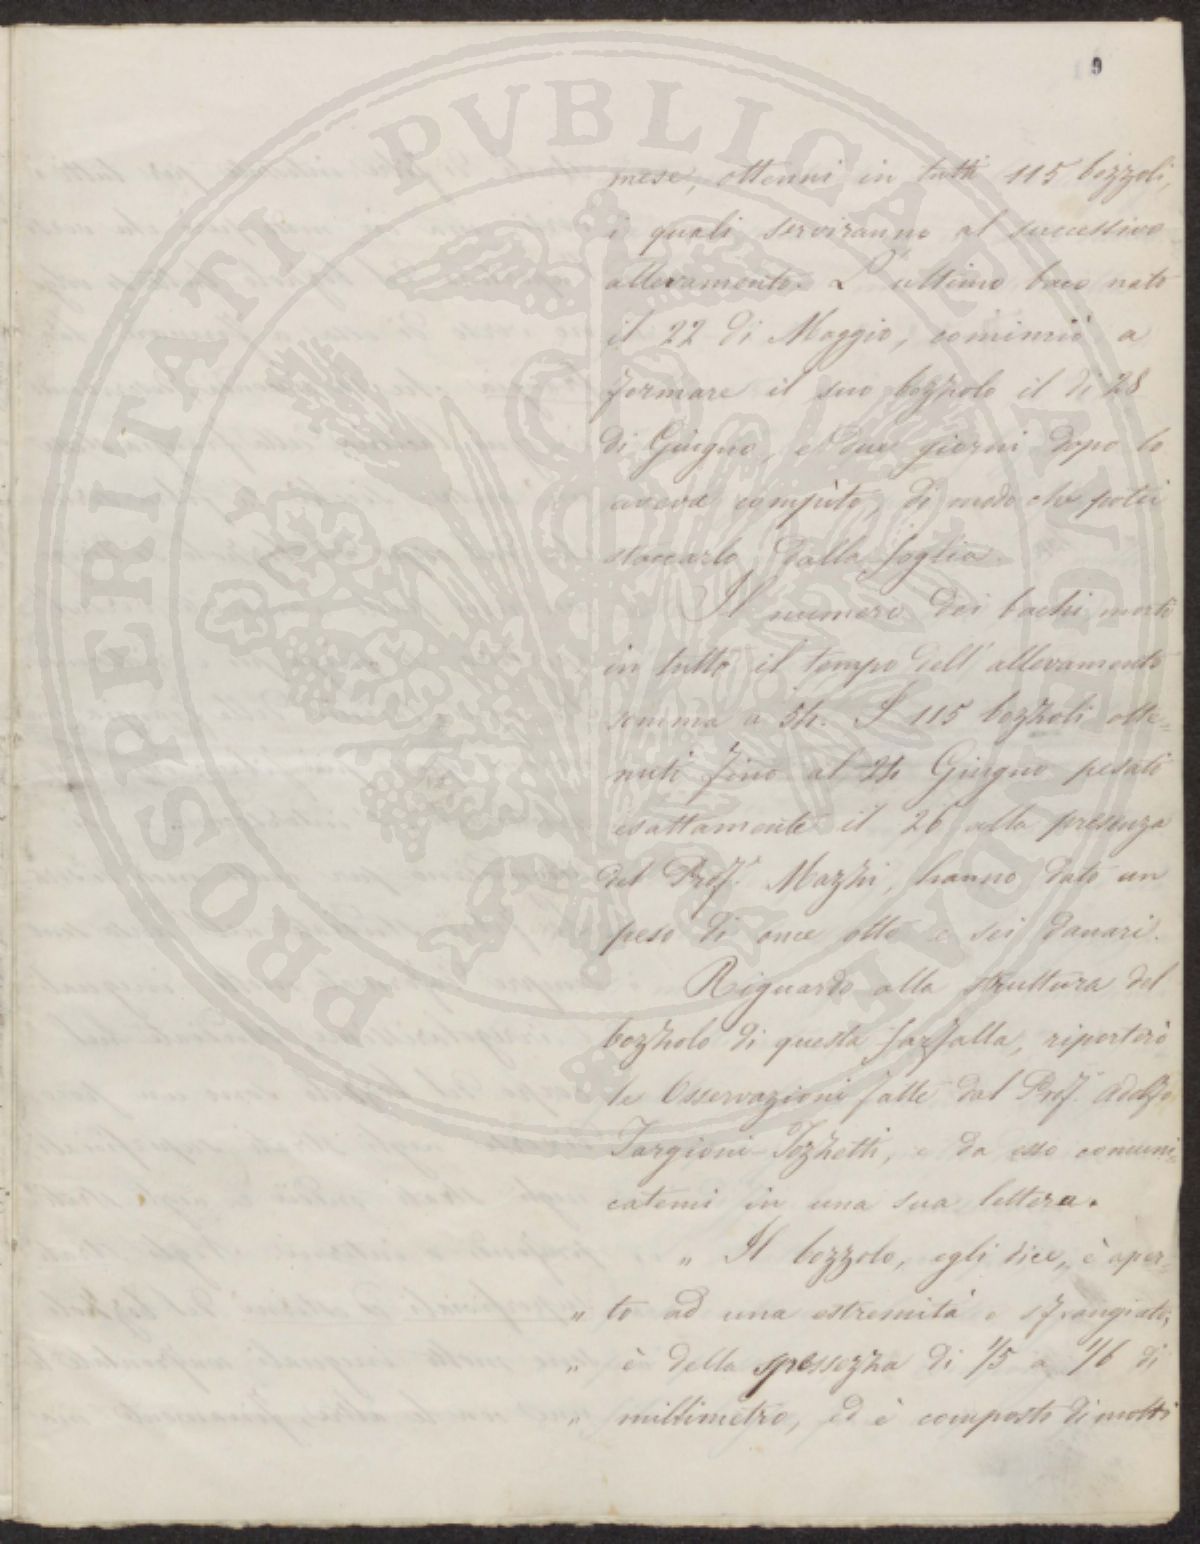 9
mese, ottenni in tutti 115 bozzoli,
i quali serviranno al successivo
allevamento. L'ultimo baco nato
il 22 di Maggio, cominciò a
formare il suo bozzolo il dì 28
di Giugno, e due giorni dopo lo
aveva compiuto, di modo che potei
staccarlo dalla foglia.
Il numero dei bachi morti
in tutto il tempo dell'allevamento
somma a 54. I 115 bozzoli otte=
nuti fino al 24 Giugno pesati
esattamente il 26 alla presenza
del Prof.r Mazzi, hanno dato un
peso di once otto e sei danari.
Riguardo alla struttura del
bozzolo di questa farfalla, riporterò
le Osservazioni fatte dal Prof.r Adolfo
Targioni-Tozzetti, e da esso comuni=
catemi in una sua lettera.
" Il bozzolo, egli dice, è aper=
" to ad una estremità e sfrangiato,
" è della spessezza di 1/5 a 1/6 di
" millimetro, ed è composto di molti
PROSPERITATI PVBLICAE AVGENDAE